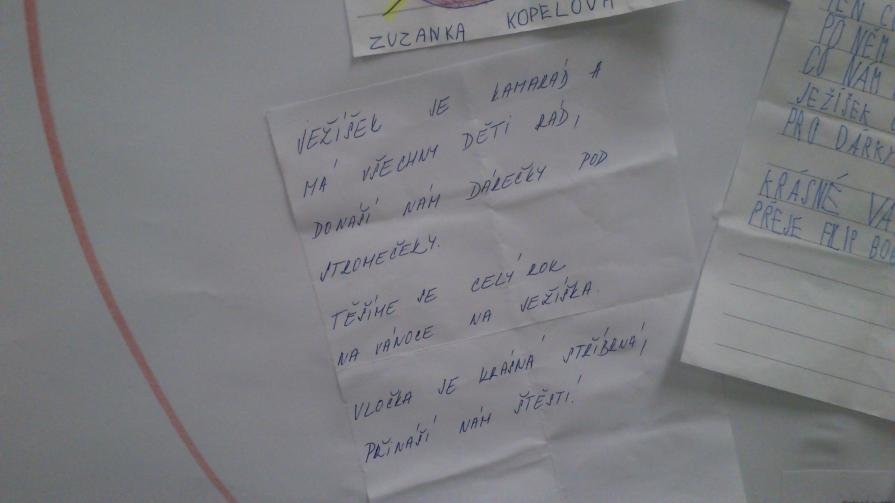 ZUZANKA KOPELOVÁ
JEŽÍŠEK JE KAMARÁD A
MÁ VŠECHNY DĚTI RÁD,
DONAŠÍ NÁM DÁREČKY POD
STROMEČEKY.
TĚŠÍME SE CELÝ ROK
NA VÁNOCE NA JEŽÍŠKA.
VLOČKA JE KRÁSNÁ STŘÍBRNÁ,
PŘINÁŠÍ NÁM ŠTĚSTÍ.
PO NĚM
CO NÁM
JEŽÍŠEK
PRO DÁRK
KRÁSNÉ
PŘEJE FILIP